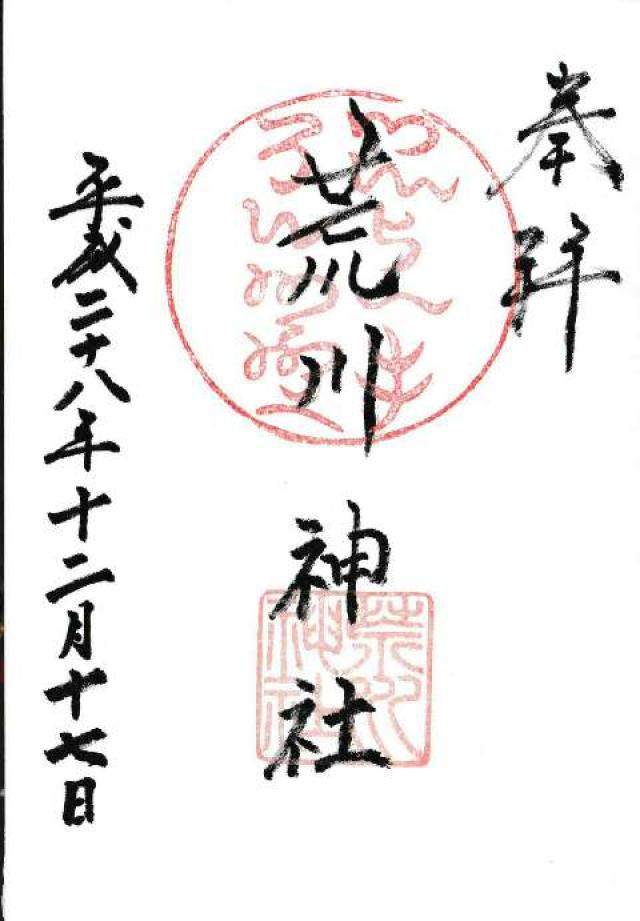 奉拝
荒川神社
荒川神社
平成二十八年十二月十七日